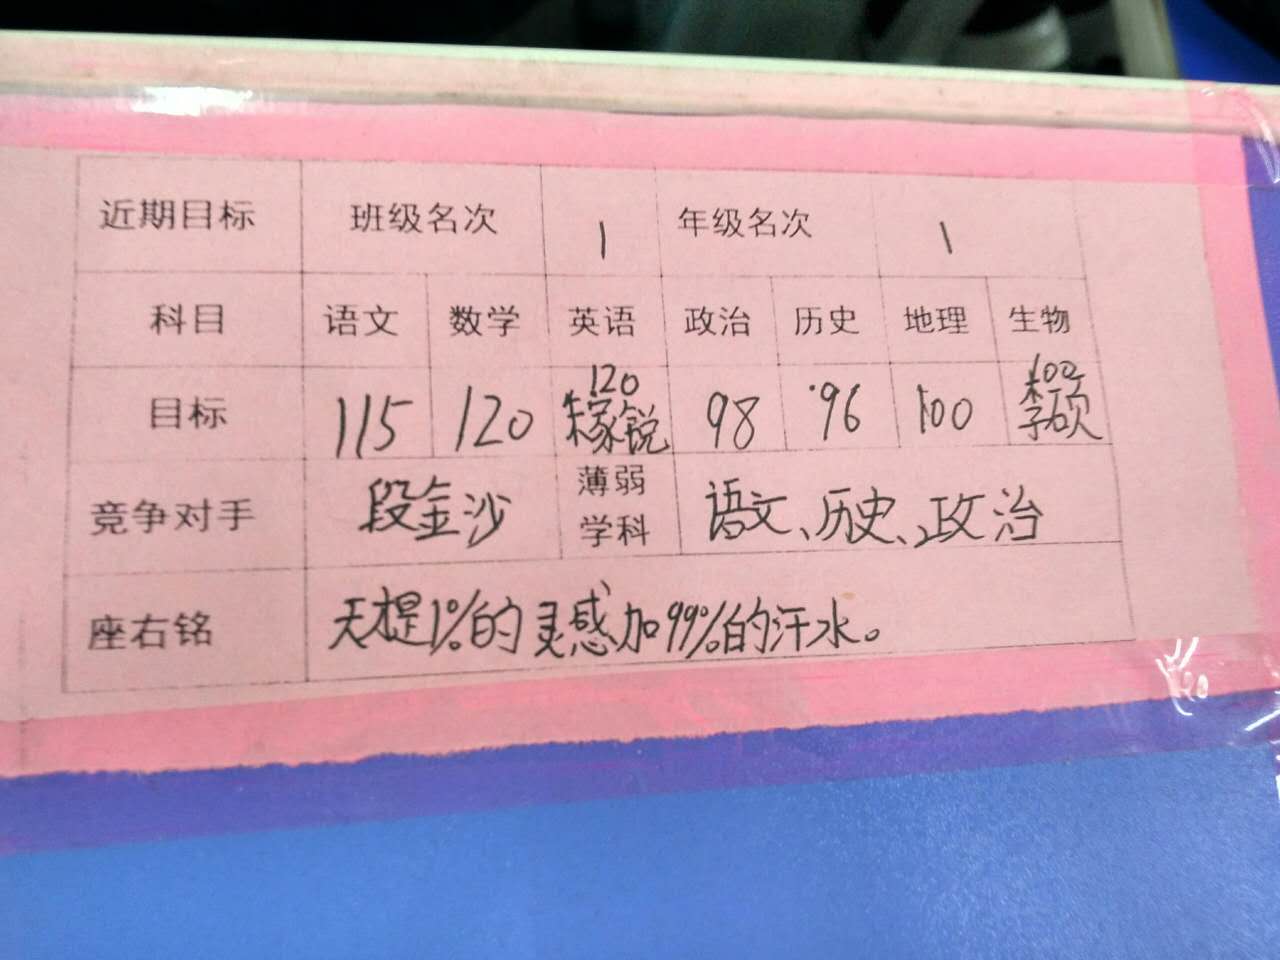 近期目标 班级名次 1 年级名次 1
科目 语文 数学 英语 政治 历史 地理 生物
目标 115 120 120 98 96 100 100
李硕
竞争对手 段金沙 薄弱学科 语文、历史、政治
座右铭 天才是1%的灵感加99%的汗水。